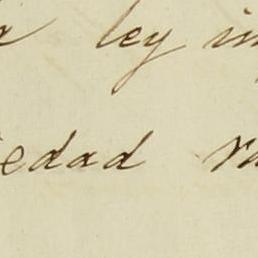 a ley in
edad ra